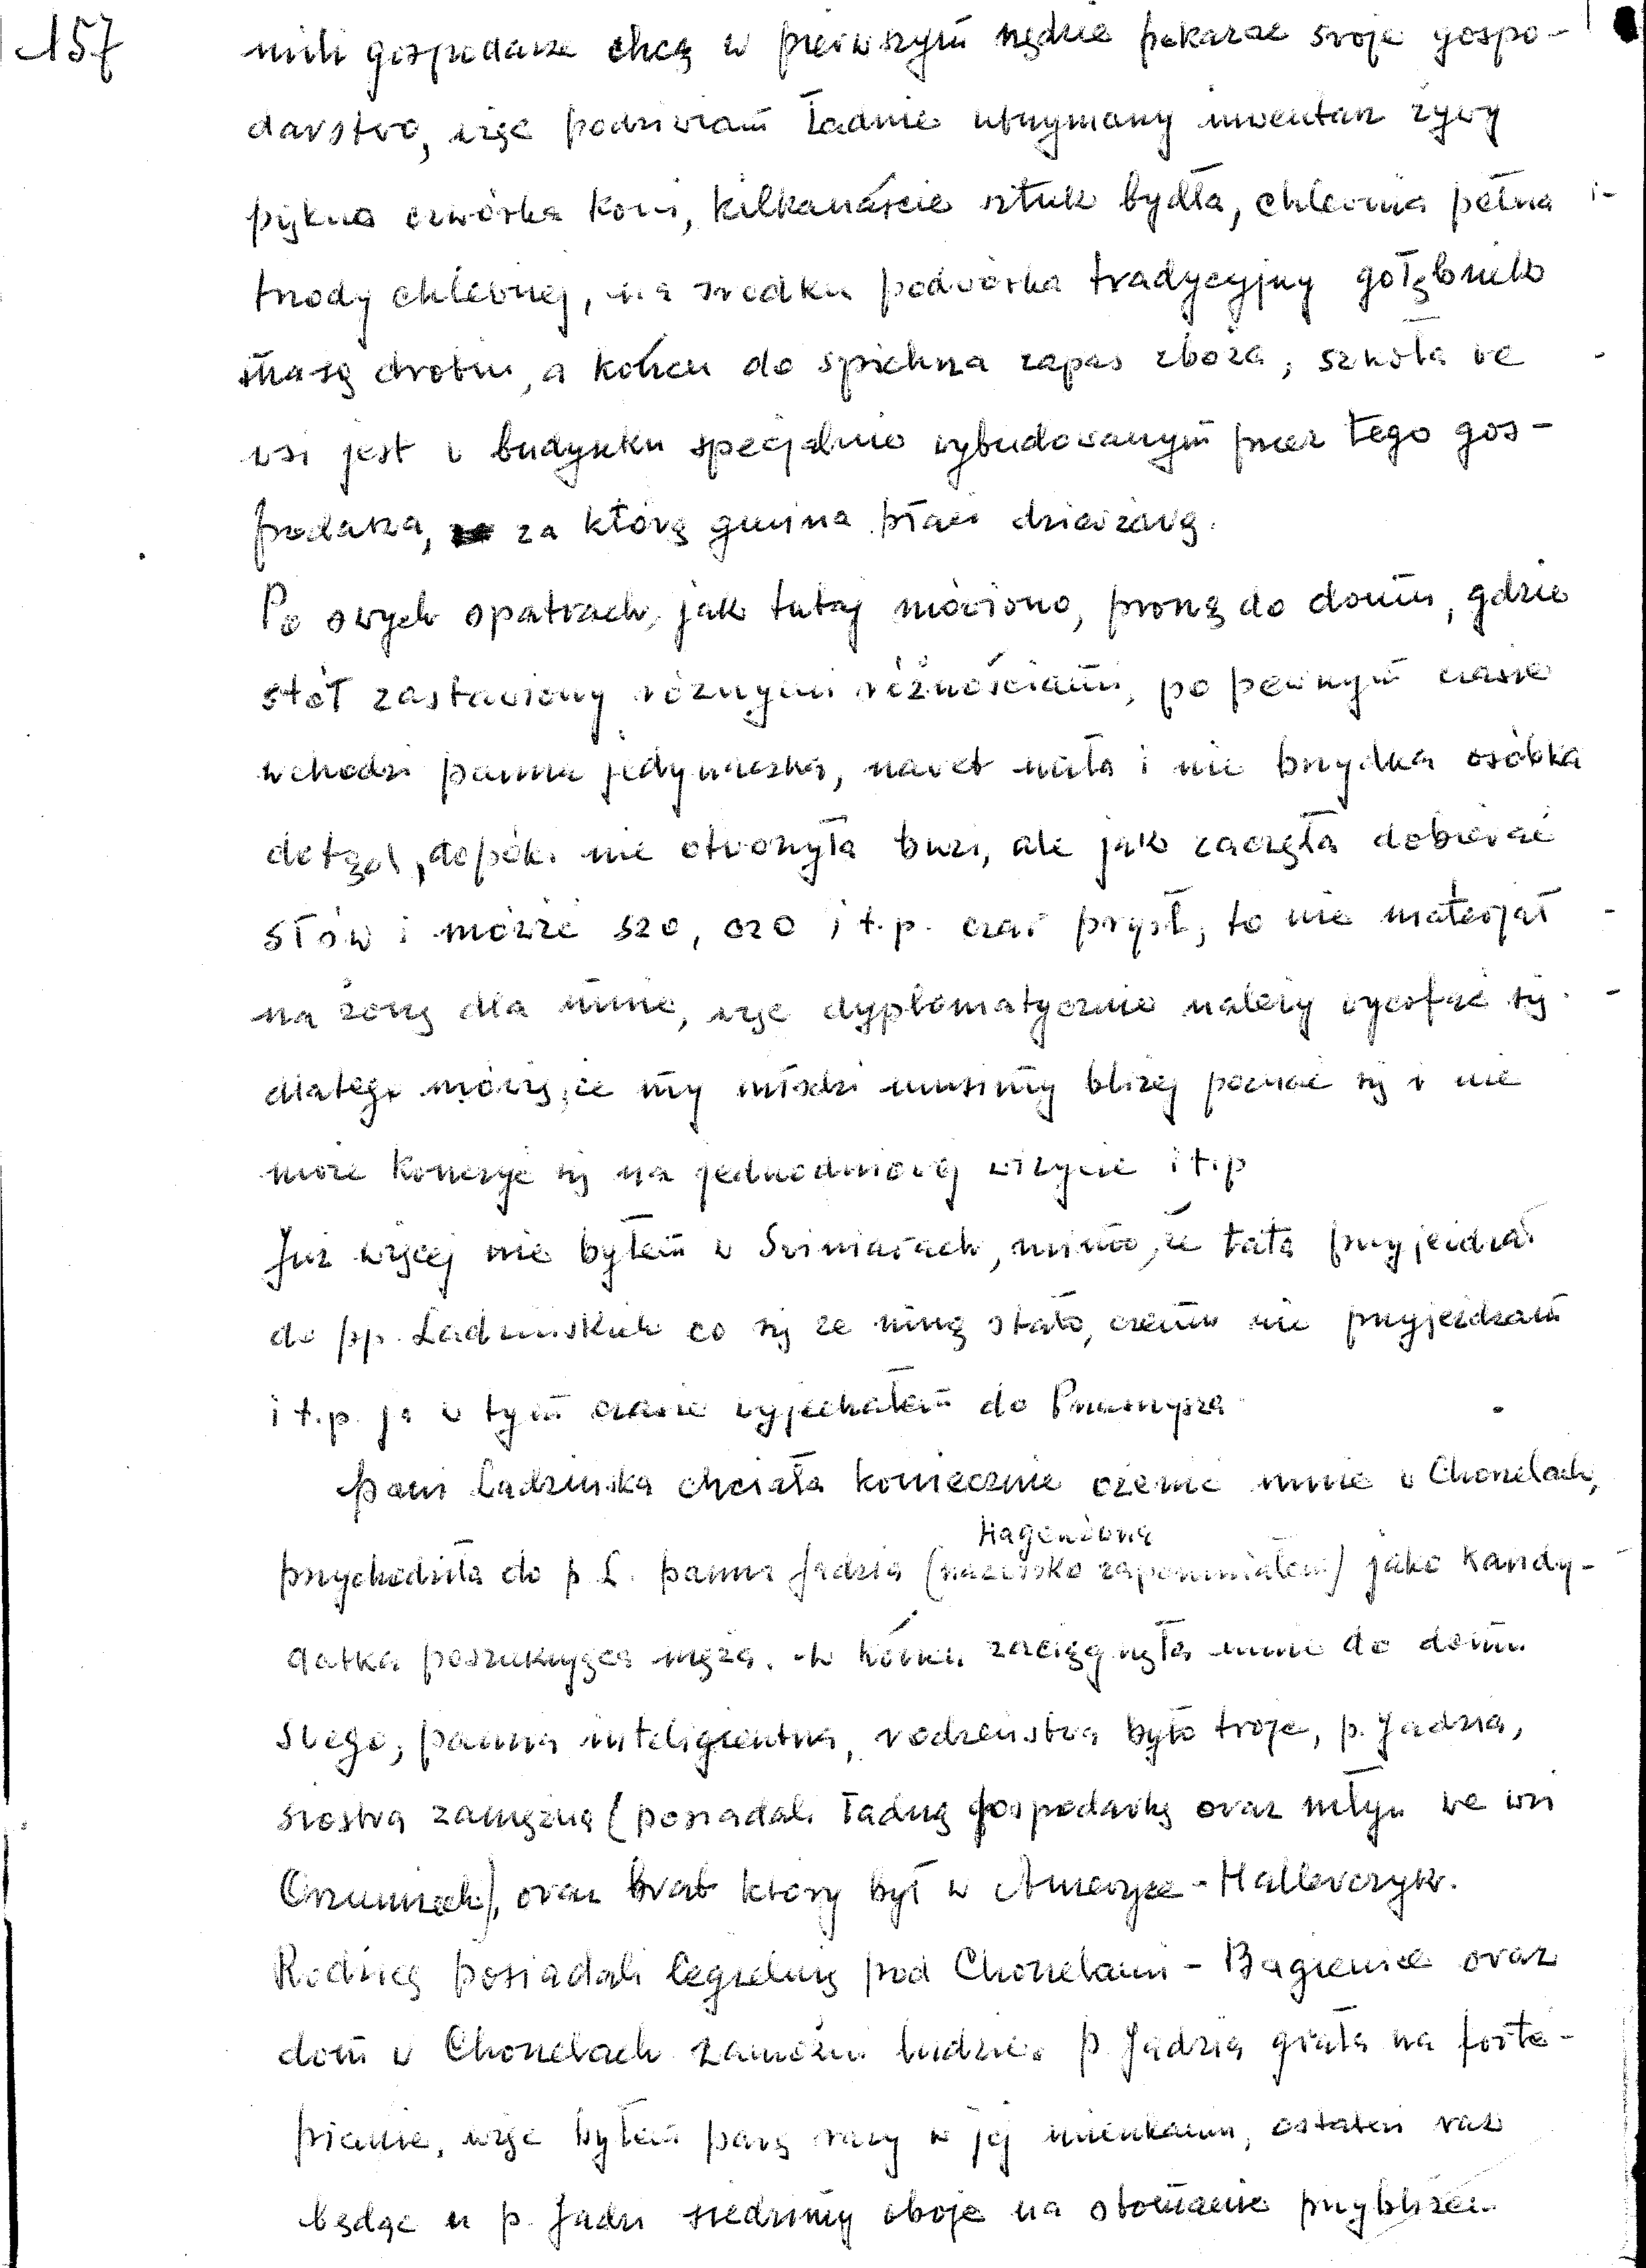 157
mili gospodarze chcą w pierwszym rzędzie pokazać swoje gospo-
darstwo, więc podziwiam ładnie utrzymany inwentarz żywy
piękna czwórka koni, kilkanaście sztuk bydła, chlewnia pełna
trzody chlewnej, na środku podwórka tradycyjny gołębnik
masę drobiu, a w końcu do spichrza zapas zboża, szkoła we
wsi jest w budynku specjalnie wybudowanym przez tego gos-
podarza, za którą gmina płaci dzierżawę.
Po owych opatrach, jak tutaj mówiono, proszą do domu, gdzie
stół zastawiony różnymi różnościami, po pewnym czasie
wchodzi panna jedynaczka, nawet miła i nie brzydka osóbka
dotąd, dopóki nie otworzyła buzi, ale jak zaczęła dobierać
słów i mówić szo, czo i t.p. czar prysł, to nie materjał
na żonę dla mnie, więc dyplomatycznie należy wycofać się
dlatego mówię, że my młodzi musimy bliżej poznać się i nie
może kończyć się na jednodniowej wizycie i t.p
Już więcej nie byłem w Świniarach, mimo, że tata przyjeżdżał
do pp. Ładzińskich co się ze mną stało, czemu nie przyjeżdżam
i t.p. ja w tym czasie wyjechałem do Przasnysza
Pani Ładzińska chciała koniecznie ożenić mnie w Chorzelach,
Hagenówna
przychodziła do p. Ł. panna Jadzia (nazwisko zapomniałem) jako kandy-
datka poszukująca męża, w końcu zaciągnęła mnie do domu
swego, panna inteligientna, rodzeństwa było troje, p. Jadzia,
siostra zamężna (posiadali ładną gospodarkę oraz młyn we wsi
), oraz brat który był w Ameryce - Hallerczyk.
Rodzice posiadali cegielnię pod Chorzelami - Bagienice oraz
dom w Chorzelach zamożni ludzie. p. Jadzia grała na forte-
pianie, więc byłem parę razy w jej mieszkaniu, ostatni raz
będąc u p. Jadzi siedzimy oboje na otomanie przybliżen